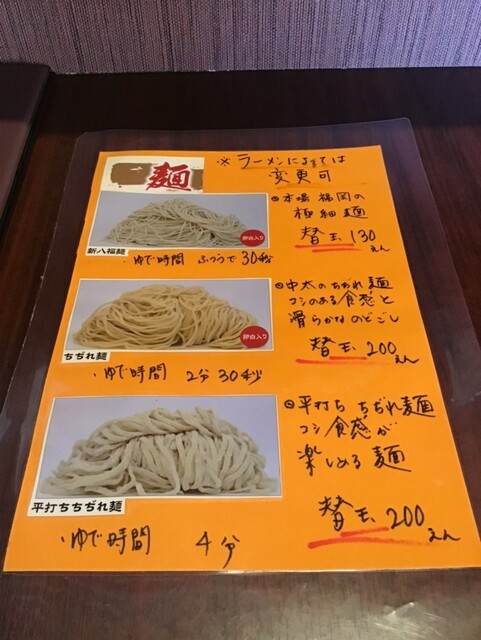 麺
※ ラーメンによっては
変更可
卵白入り
新八福麺
・ゆで時間 ふつうで30秒
◎本場福岡の
極細麺
替玉130えん
卵白入り
ちぢれ麺
・ゆで時間 2分30秒
◎中太のちぢれ麺
コシのある食感と
滑らかなのどごし
替玉200えん
平打ちちぢれ麺
・ゆで時間 4分
◎平打ちちぢれ麺
コシ食感が
楽しめる麺
替玉200えん